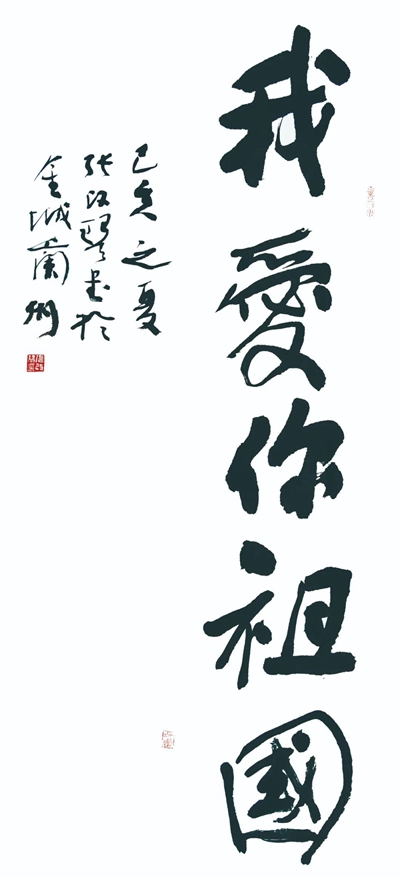 我愛你祖國
己亥之夏
张改琴书於
金城蘭州